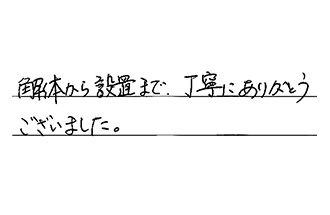 解体から設置まで、丁寧にありがとう
ございました。